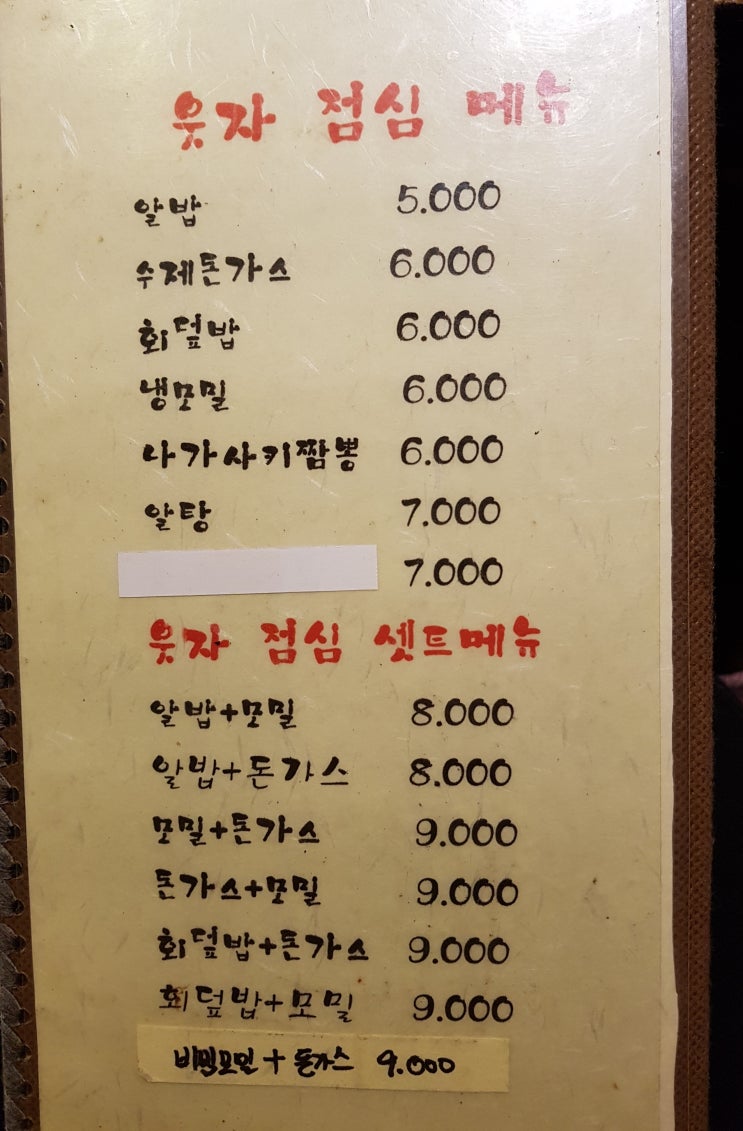 웃자 점심 메뉴
알밥 5.000
수제돈가스 6.000
회덮밥 6.000
냉모밀 6.000
나가사키짬뽕 6.000
알탕 7.000
7.000
웃자 점심 셋트메뉴
알밥+모밀 8.000
알밥+돈가스 8.000
모밀+돈가스 9.000
돈가스+모밀 9.000
회덮밥+돈가스 9.000
회덮밥+모밀 9.000
비빔모밀 + 돈가스 9.000